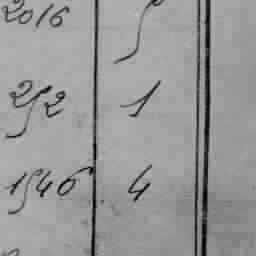 2016 5
252 1
1546 4